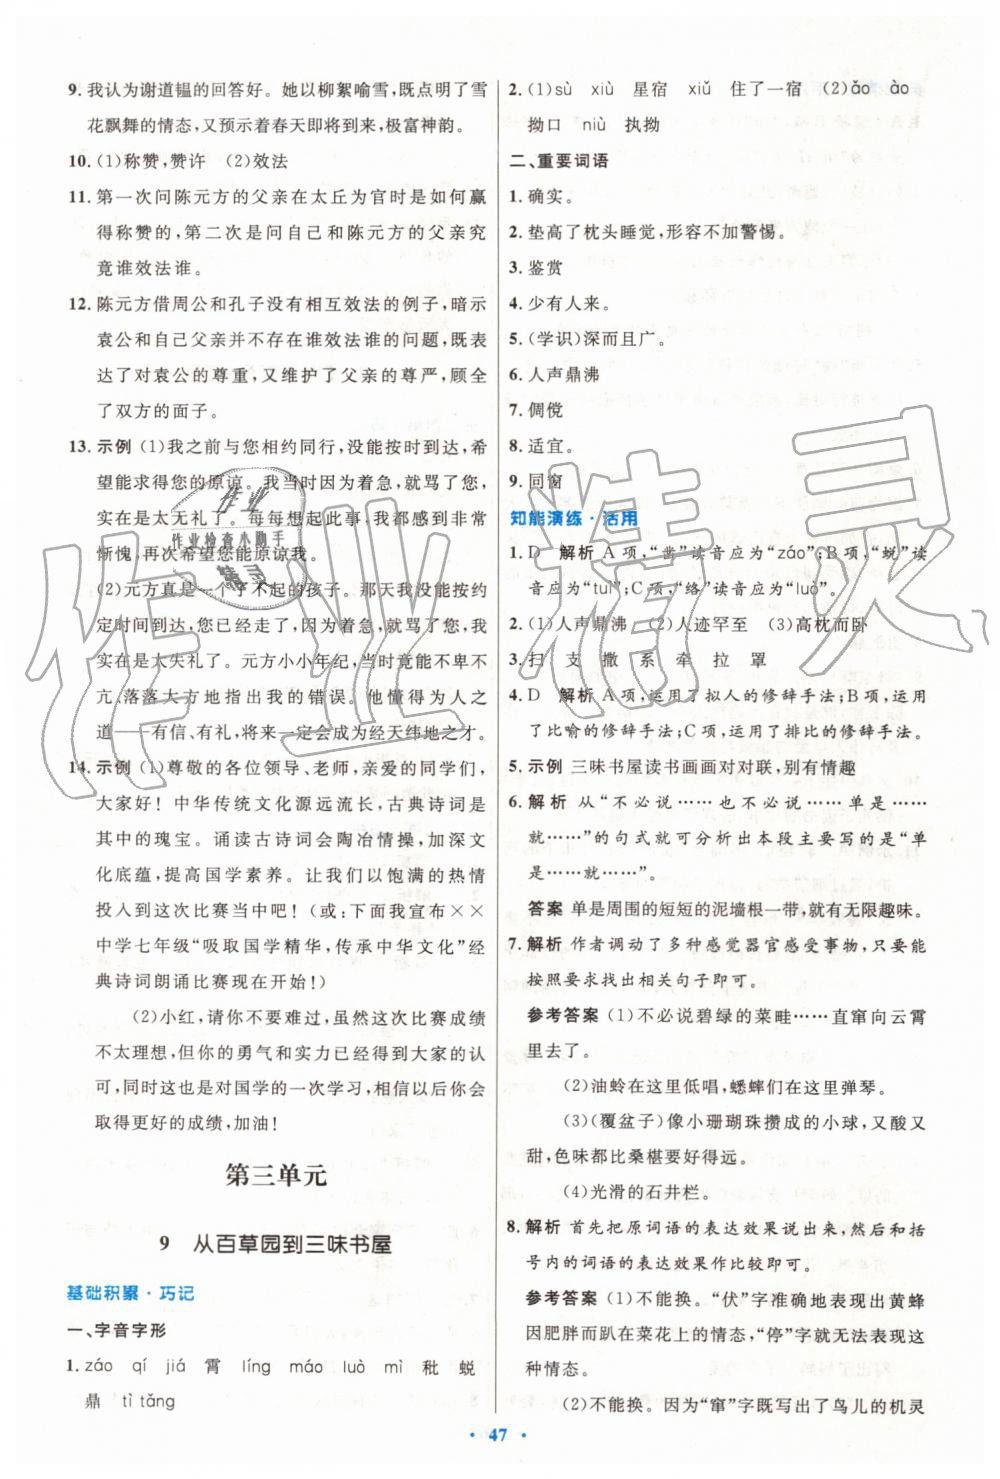 9. 我认为谢道韫的回答好。她以柳絮喻雪,既点明了雪
花飘舞的情态,又预示着春天即将到来,极富神韵。
10. (1)称赞,赞许　(2)效法
11. 第一次问陈元方的父亲在太丘为官时是如何赢
得称赞的,第二次是问自己和陈元方的父亲究
竟谁效法谁。
12. 陈元方借周公和孔子没有相互效法的例子,暗示
袁公和自己父亲并不存在谁效法谁的问题,既表
达了对袁公的尊重,又维护了父亲的尊严,顾全
了双方的面子。
13. 示例 (1)我之前与您相约同行,没能按时到达,希
望能求得您的原谅。我让您久等,还骂了您,实
在是太无礼了。每每想起此事,我都感到非常
惭愧,再次希望您能原谅我。
(2)元方真是一个了不起的孩子。那天我没能按约
定时间到达,您已经走了,因为着急,我骂了您,实
在是太失礼了。元方小小年纪,当时竟能不卑不
亢、落落大方地指出我的错误。他懂得为人之
道——有信、有礼,将来一定会成为经天纬地之才。
14. 示例 (1)尊敬的各位领导、老师,亲爱的同学们,
大家好! 中华传统文化源远流长,古典诗词是
其中的瑰宝。诵读古诗词会陶冶情操,加深文
化底蕴,提高国学素养。让我们以饱满的热情
投入到这次比赛当中吧!(或:下面我宣布××
中学七年级“吸取国学精华,传承中华文化”经
典诗词朗诵比赛现在开始!)
(2)小红,请你不要难过,虽然这次比赛成绩
不太理想,但你的勇气和实力已经得到大家的认
可,同时这也是对国学的一次学习,相信以后你会
取得更好的成绩,加油!
第三单元
9　从百草园到三味书屋
基础积累·巧记
一、字音字形
1. záo　qí　jiá　霄　líng　máo　luò　mì　秕　蜕
鼎　tì tǎng
2. (1)sù　xiù　星宿　xiǔ　住了一宿　(2)ǎo　ào
拗口　niù　执拗
二、重要词语
1. 确实。
2. 垫高了枕头睡觉,形容不加警惕。
3. 鉴赏
4. 少有人来。
5. (学识)深而且广。
6. 人声鼎沸
7. 倜傥
8. 适宜。
9. 同窗
知能演练·活用
1. D　解析 A项,“凿”读音应为“záo”;B项,“蜕”读
音应为“tuì”;C项,“络”读音应为“luò”。
2. (1)人声鼎沸　(2)人迹罕至　(3)高枕而卧
3. 扫　支　撒　系　牵　拉　罩
4. D　解析 A项,运用了拟人的修辞手法;B项,运用
了比喻的修辞手法;C项,运用了排比的修辞手法。
5. 示例 三味书屋读书画画对对联,别有情趣
6. 解析 从“不必说……也不必说……单是……
就……”的句式就可分析出本段主要写的是“单
是……就……”。
答案 单是周围的短短的泥墙根一带,就有无限趣味。
7. 解析 作者调动了多种感觉器官感受事物,只要能
按照要求找出相关句子即可。
参考答案 (1)不必说碧绿的菜畦……直窜向云霄
里去了。
(2)油蛉在这里低唱,蟋蟀们在这里弹琴。
(3)(覆盆子)像小珊瑚珠攒成的小球,又酸又
甜,色味都比桑椹要好得远。
(4)光滑的石井栏。
8. 解析 首先把原词语的表达效果说出来,然后和括
号内的词语的表达效果作比较即可。
参考答案 (1)不能换。“伏”字准确地表现出黄蜂
因肥胖而趴在菜花上的情态,“停”字就无法表现这
种情态。
(2)不能换。因为“窜”字既写出了鸟儿的机灵
· 47 ·
作业精灵
作业
作业检查小助手
精灵